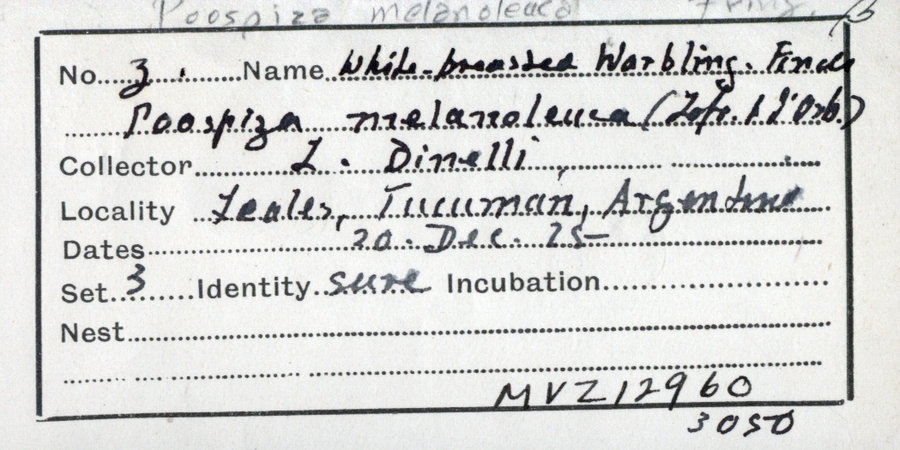 Poospiza melanoleuca Fring.
No. 3. Name White-breasted Warbling-Finch
Poospiza melanoleuca (Lafr. & d'Orb.)
Collector L. Dinelli
Locality Leales, Tucuman, Argentina
Dates 20. Dec. 25-
Set 3 Identity sure Incubation
Nest
MVZ12960
3050